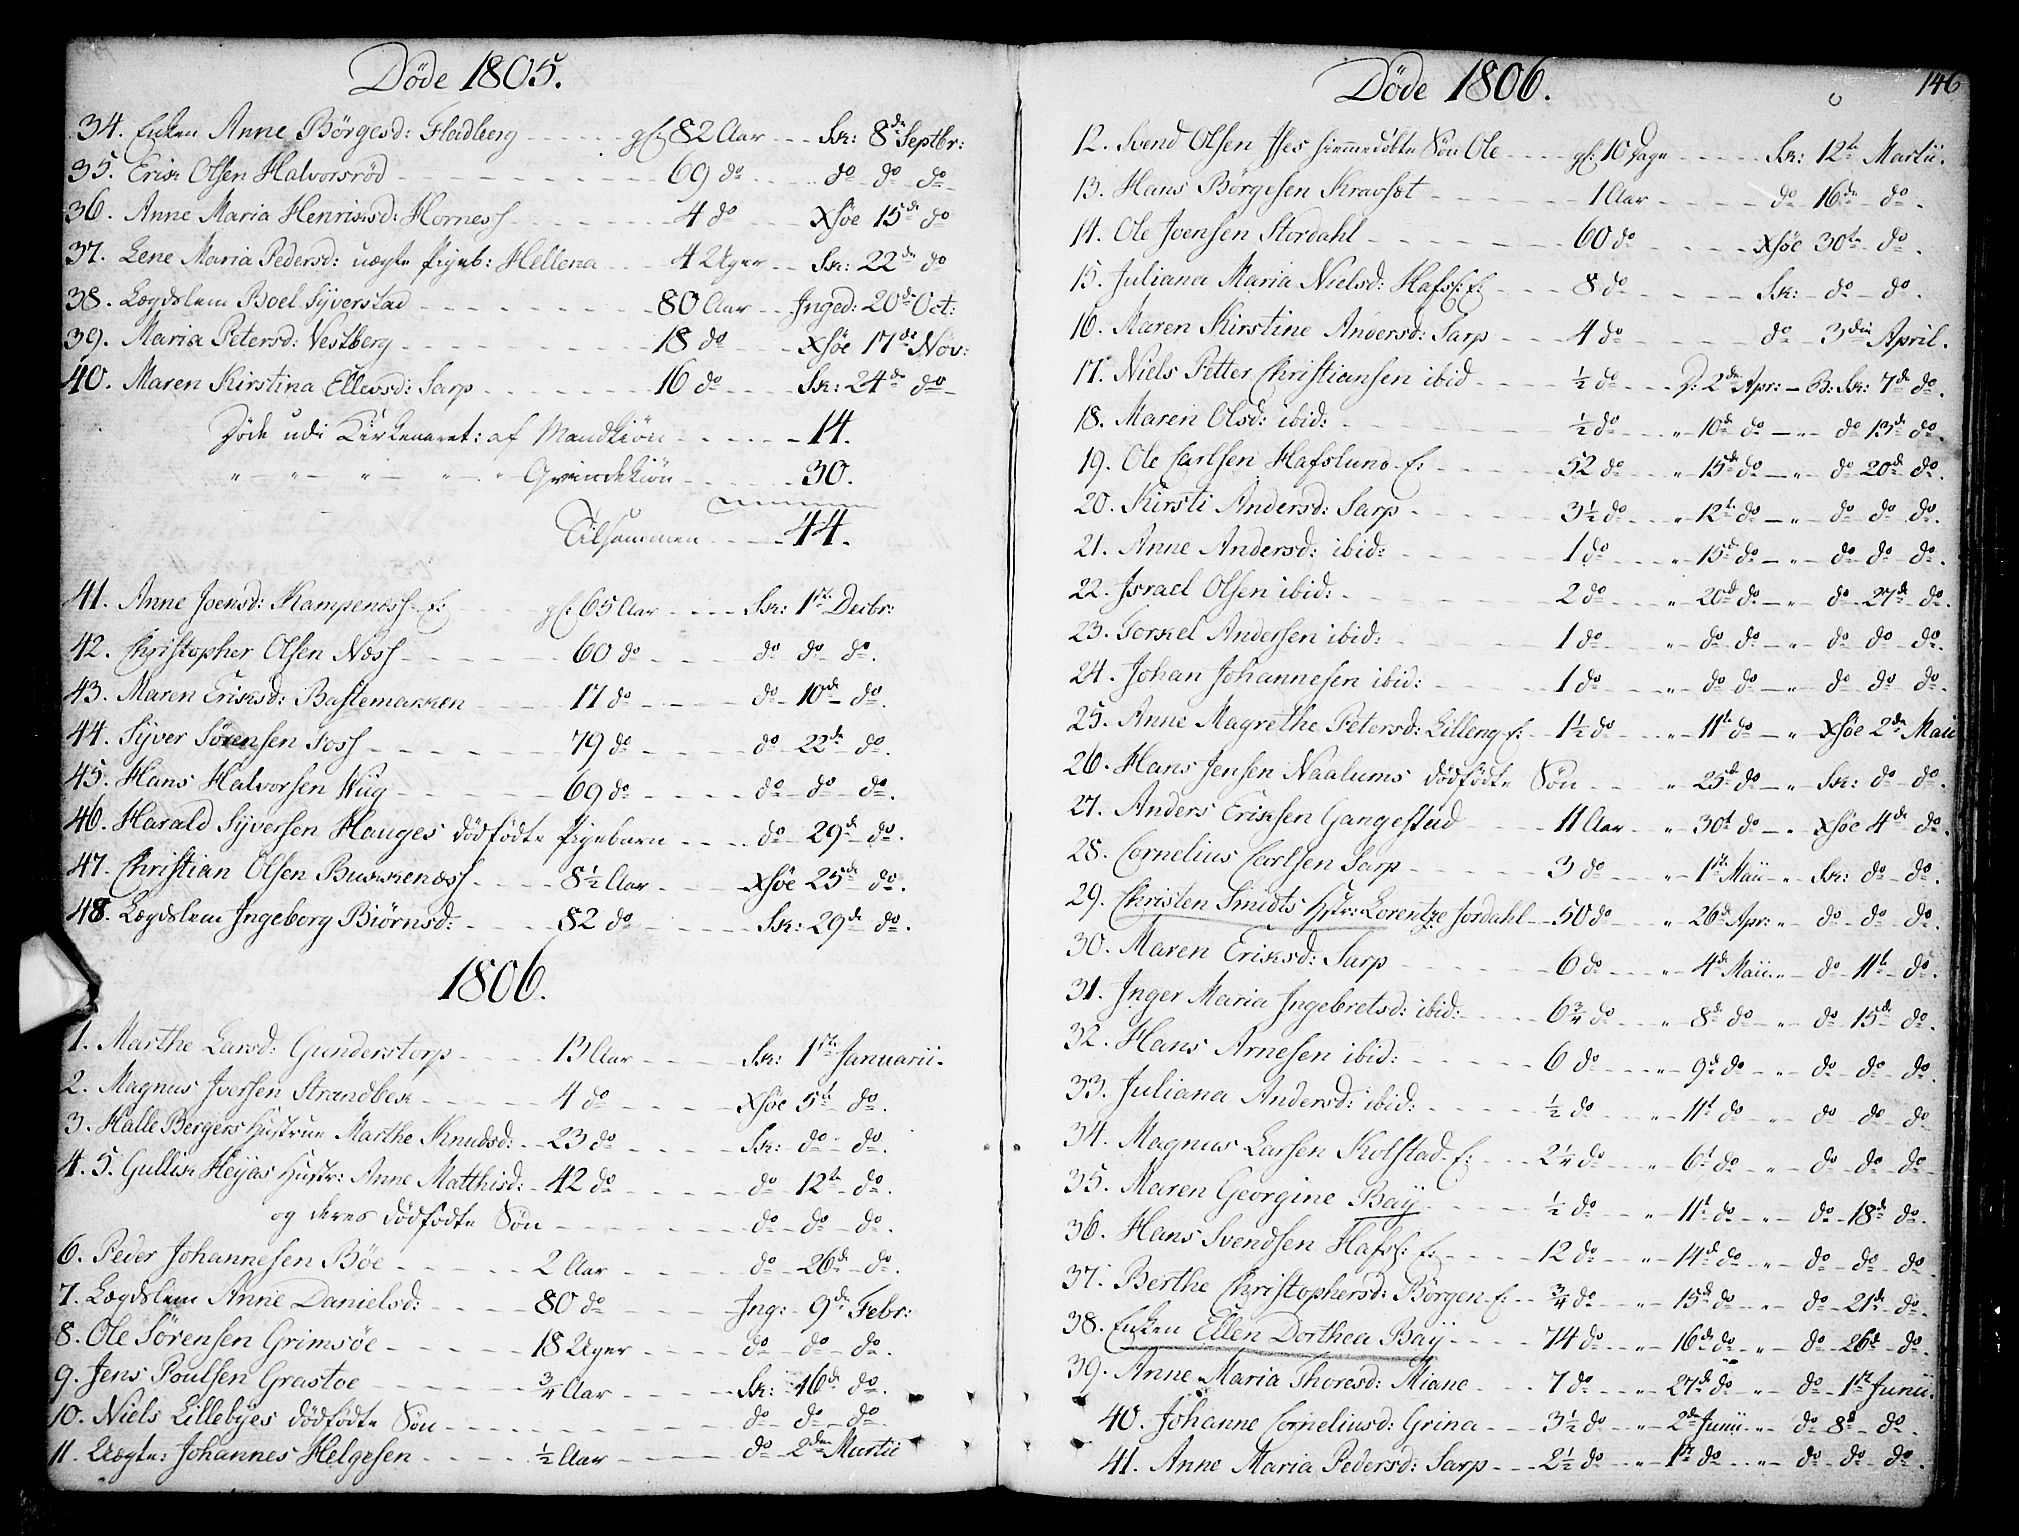 Døde 1805.
34. Enken Anne Börgesd: Fladberg - - - gl: 82 Aar - - - Sk: 8de Septbr:
35. Erik Olsen Halvorsröd - - - 69 do - - - do - do - do
36. Anne Maria Henriksd: Horness - - - 4 do - - - Xsöe 15de do
37. Lene Maria Pedersd: uægte Pigeb: Hellena - - - 4 Uger - - Sk: 22de do
38. Lægdslem Boel Syverstad - - - 80 Aar - - - Inged: 20de Oct:
39. Maria Petersd: Vestberg - - - 18 do - - - Xsöe 17de Nov:
40. Maren Kirstina Ellevsd: Sarp - - - 16 do - - - Sk: 24de do
Döde udi Kirkeaaret: af Mandkiön - - - 14.
" - " - " - " - " Qvindekiön - - - 30.
Tilsammen - - - 44.
41. Anne Joensd: Kampeness E: - - - gl: 65 Aar - - - Sk: 1ste Decbr:
42. Christopher Olsen Næss - - - 60 do - - - do do do.
43. Maren Eriksd: Bastemarken - - - 17 do - - - do 10de do.
44. Syver Sörensen Foss - - - 79 do - - - do 22de do.
45. Hans Halvorsen Wiig - - - 69 do - - - do - do - do.
46. Harald Syversen Hauges dödfödte Pigebarn - - - do - 29de do.
47. Christian Olsen Bukkenæss - - - 8½ Aar - - - Xsöe 25de do.
48. Lægdslem Ingeborg Biörnsd: - - - 82 do - - - Sk: 29de do.
1806.
1. Marthe Larsd: Gunderstorp - - - 13 Aar - - - Sk: 1ste Januarii.
2. Magnus Iversen Strandbek - - - 4 do - - - Xsöe 5te do.
3. Halle Bergers Hustrue Marthe Knudsd: - - 23 do - - - Sk: do - do.
4. 5. Gullik Heyas Hustr: Anne Matthisd: - 42 do - - - do - 12te do.
og deres dödfödte Sön - - - do - do - do.
6. Peder Johannesen Böe - - - 2 Aar - - - do - 26de do.
7. Lægdslem Anne Danielsd: - - - 80 do - - - Ing: 9de Febr:
8. Ole Sörensen Grimsöe - - - 18 Uger - - - do - do - do.
9. Jens Poulsen Grastoe - - - ¾ Aar - - - Sk: 16de do.
10. Niels Lillebyes dödfödte Sön - - - do - do - do.
11. Uægte: Johannes Helgesen - - - ½ Aar - - - do 2den Martii
Døde 1806.
146
12. Svend Olsen Ises hiemmedöbte Sön Ole - - - gl: 10 Dage - - - Sk: 12te Martii.
13. Hans Börgesen Kravsöt - - - 1 Aar - - - do 16de do.
14. Ole Joensen Stordahl - - - 60 do - - - Xsöe 30te do.
15. Juliana Maria Nielsd: Hafsl: E: - - - 8 do - - - Sk: do - do.
16. Maren Kirstine Andersd: Sarp - - - 4 do - - - do 3die April.
17. Niels Petter Christiansen ibid - - - ½ do - - - D: 2den Apr: - B: Sk: 7de do.
18. Maren Olsd: ibid: - - - ½ do - - - " 10de do - " - do 13de do.
19. Ole Carlsen Hafslund E: - - - 52 do - - " 15de do - " - do 20de do.
20. Kirsti Andersd: Sarp - - - 3½ do - - " 12te do - " - do do do.
21. Anne Andersd: ibid: - - - 1 do - - " 15de do - " - do do do.
22. Israel Olsen ibid: - - - 2 do - - " 20de do - " - do 27de do.
23. Torkel Andersen ibid: - - - 1 do - - " do do - " - do do do.
24. Johan Johannesen ibid: - - - 1 do - - " do do - " - do do do.
25. Anne Magrethe Petersd: Lilleng E: - 1½ do - - " 11te do - " Xsöe 2den Maii
26. Hans Jensen Naalums dödfödte Sön - - - " 25de do - " Sk: do - do.
27. Anders Eriksen Gangestad - - - 11 Aar - - " 30te do - " Xsöe 4de do.
28. Cornelius Carlsen Sarp - - - 3 do - - " 1ste Maii " Sk: do - do.
29. Christen Smidts Hstr: Lorentze Jordahl - 50 do - - " 26de Apr: " do - do - do.
30. Maren Eriksd: Sarp - - - 6 do - - " 4de Maii " do 11te do.
31. Inger Maria Ingebretsd: ibid: - - - 6¾ do - - " 8de do " do 15de do.
32. Hans Arnesen ibid: - - - 6 do - - " 9de do " do - do - do.
33. Juliana Andersd: ibid: - - - ½ do - - " 11te do " do do do
34. Magnus Larsen Kolstad E: - - - 2¼ do - - " 6te do " do do do
35. Maren Georgine Baÿ - - - ½ do - - " 11te do " do 18de do.
36. Hans Svendsen Hafsl: E: - - - 12 do - - " 14de do " do do do.
37. Berthe Christophersd: Börgen E: - ¾ do - - " 15de do " do 21de do.
38. Enken Ellen Dorthea Baÿ - - - 74 do - - " 16de do " do 26de do.
39. Anne Maria Thoresd: Miane - - - 7 do - - " 27de do " do 1ste Junii.
40. Johanne Corneliusd: Grina - - - 3½ do - - " 2den Junii " do 8de do.
41. Anne Maria Pedersd: Sarp - - - 2½ do - - " 1ste do " do do do.